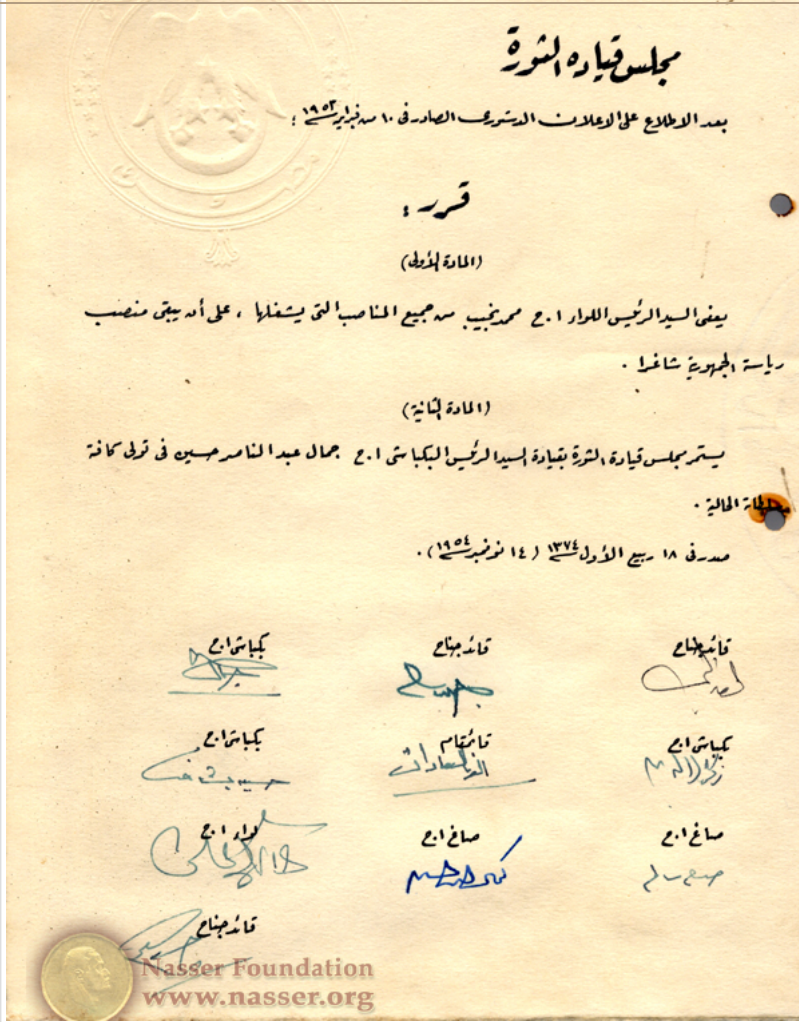 مجلس قيادة الثورة
بعد الاطلاع على الاعلان الدستورى الصادر فى ١٠ من فبراير سنة ١٩٥٣ ؛
قرر :
(المادة الأولى)
يعفى السيد الرئيس اللواء ا.ح محمد نجيب من جميع المناصب التى يشغلها ، على أن يبقى منصب
رياسة الجمهورية شاغرا .
(المادة الثانية)
يستمر مجلس قيادة الثورة بقيادة السيد الرئيس البكباشى ا.ح جمال عبد الناصر حسين فى تولى كافة
الحالية .
صدر فى ١٨ ربيع الأول سنة ١٣٧٤ (١٤ نوفمبر سنة ١٩٥٤) .
قائد جناح قائد جناح بكباشى ا.ح
بكباشى ا.ح قائمقام بكباشى ا.ح
أنور السادات
صاغ ا.ح صاغ ا.ح لواء ا.ح
قائد جناح
Nasser Foundation
www.nasser.org